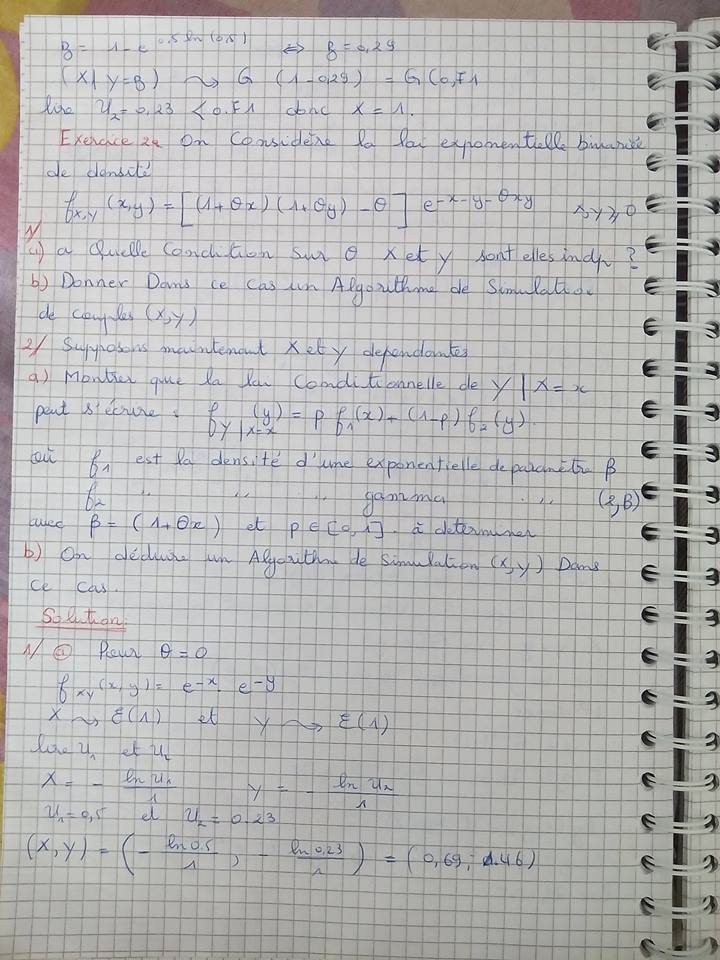 B = 1 - e^{0.5 ln(0.5)} ⇔ B = 0,29
(X | Y=B) ⤳ G (1-0,29) = G(0,71
lire U₂ = 0,23 < 0.71 donc X = 1.
Exercice 2: On Considère la lai exponentielle bivariée
de densité
f_{X,Y} (x,y) = [(1+θx)(1+θy) - θ] e^{-x-y-θxy} x,y ⩾ 0
1/
a) a Quelle Condition sur θ X et Y sont elles indp ?
b) Donner Dans ce cas un Algorithme de Simulation
de couples (X,Y)
2/ Supposons maintenant X et Y dependantes
a) Montrer que la lai Conditionnelle de Y | X = x
peut s'écrire : f_{Y|X=x} (y) = p f₁(x) + (1-p) f₂(y).
où f₁ est la densité d'une exponentielle de paramètre β
f₂ " " " gamma " " (2,β)
avec β = (1+θx) et p ∈ [0,1]. à determiner
b) On déduire un Algorithme de Simulation (X,Y) Dans
ce cas.
Solution:
1/ a Pour θ = 0
f_{XY}(x,y) = e^{-x} e^{-y}
X ⤳ ℰ(1) et Y ⤳ ℰ(1)
lire U₁ et U₂
X = - ln U₁ / 1 Y = - ln U₂ / 1
U₁ = 0,5 et U₂ = 0.23
(X,Y) = (- ln 0.5 / 1 , - ln 0,23 / 1) = (0,69; 1.46)